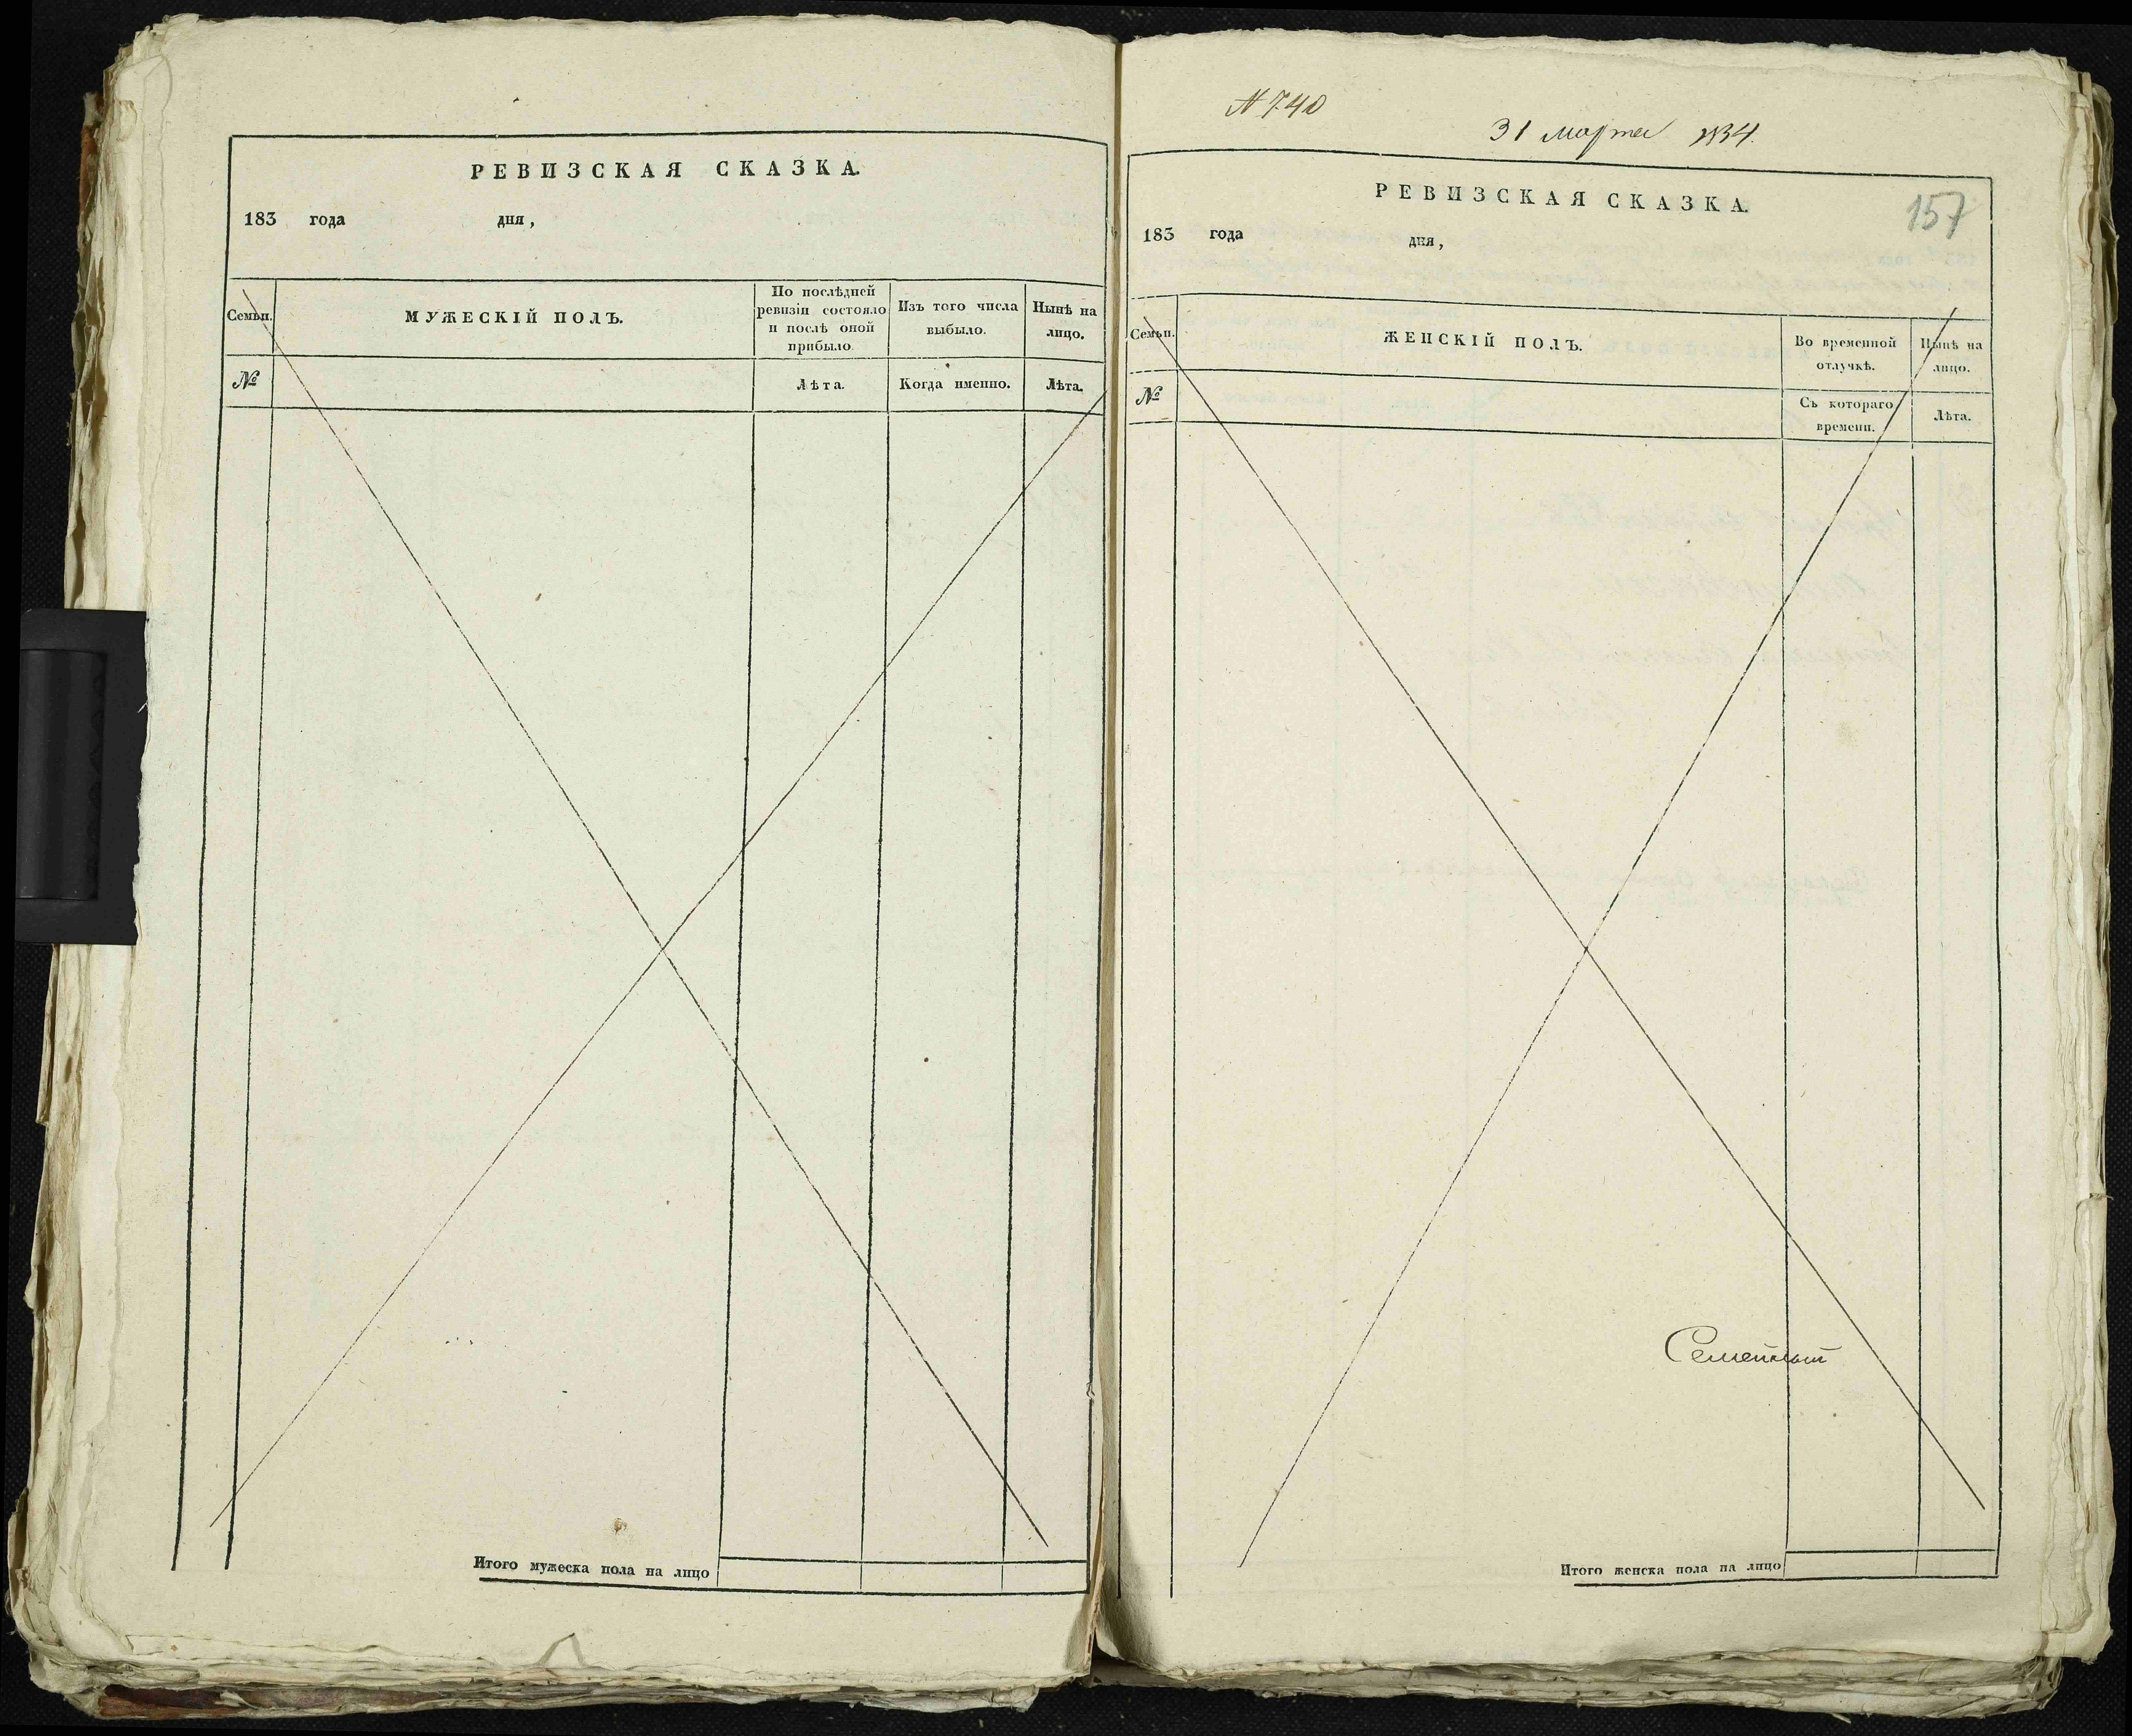 РЕВИЗСКАЯ СКАЗКА.
183 года дня,
Семьи.
МУЖЕСКІЙ ПОЛЪ.
По послѣдней
ревизіи состояло
и послѣ оной
прибыло.
Изъ того числа
выбыло.
Нынѣ на
лицо.
№
Лѣта.
Когда именно.
Лѣта.
Итого мужеска пола на лицо
N 740
31 марта 1834.
157
РЕВИЗСКАЯ СКАЗКА.
183 года дня,
Семьи.
ЖЕНСКІЙ ПОЛЪ.
Во временной
отлучкѣ.
Нынѣ на
лицо.
№
Съ котораго
времени.
Лѣта.
Итого женска пола на лицо